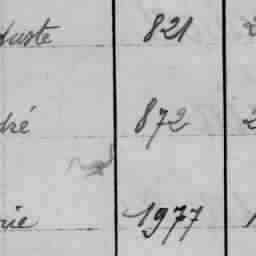 uste 821 2
dré 872 2
rie 1977 1